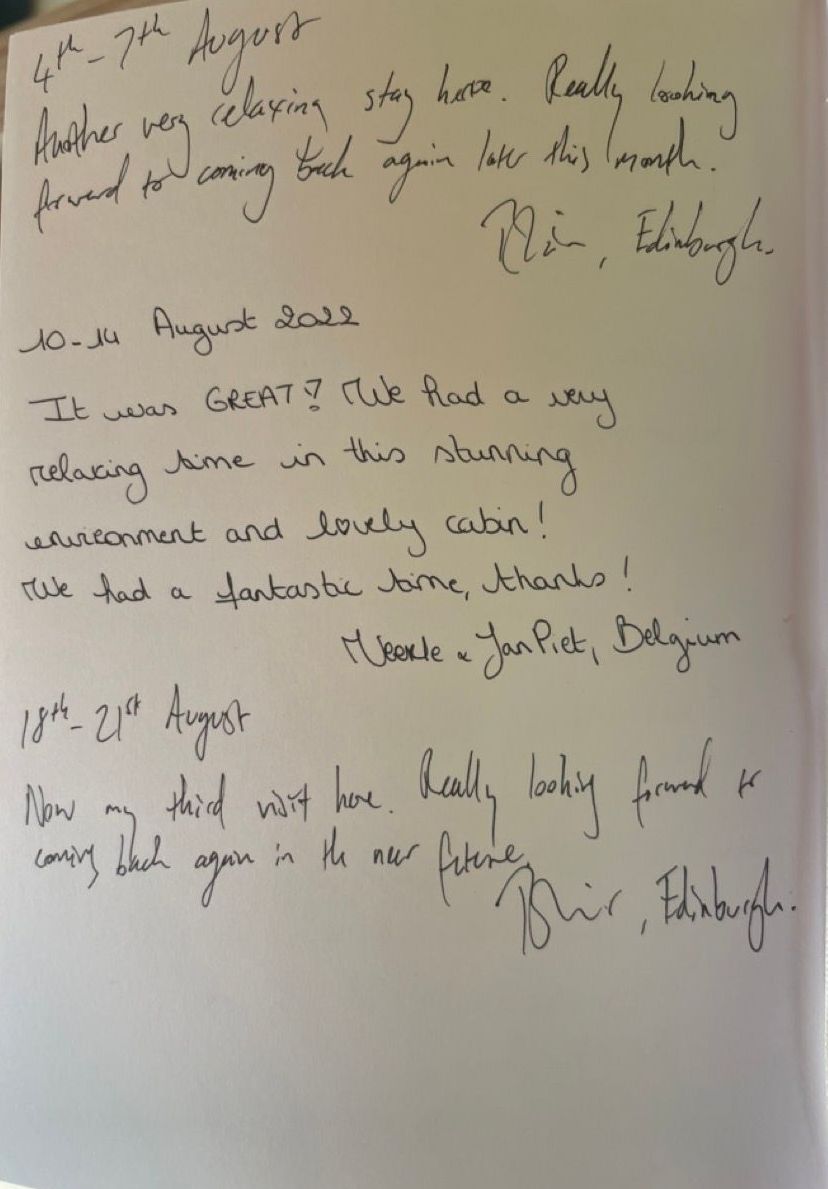 4th - 7th August
Another very relaxing stay here. Really looking
forward to coming back again later this month.
, Edinburgh.
10-14 August 2022
It was GREAT! We had a very
relaxing time in this stunning
environment and lovely cabin!
We had a fantastic time, thanks!
Veerle & Jan Piet, Belgium
18th - 21st August
Now my third visit here. Really looking forward to
coming back again in the near future.
, Edinburgh.